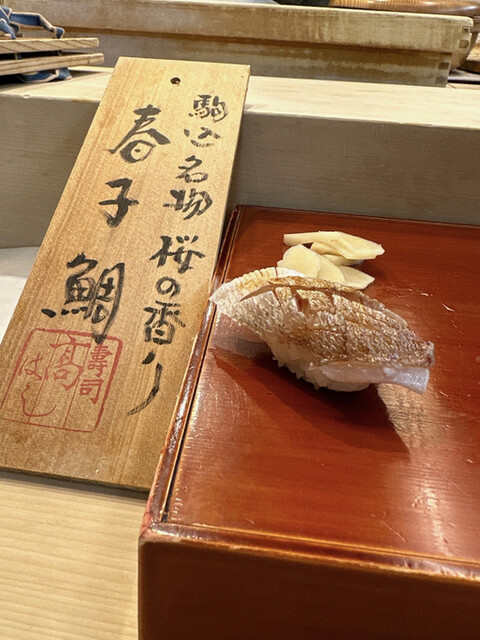 駒込名物桜の香り
春子鯛
壽司
高はし